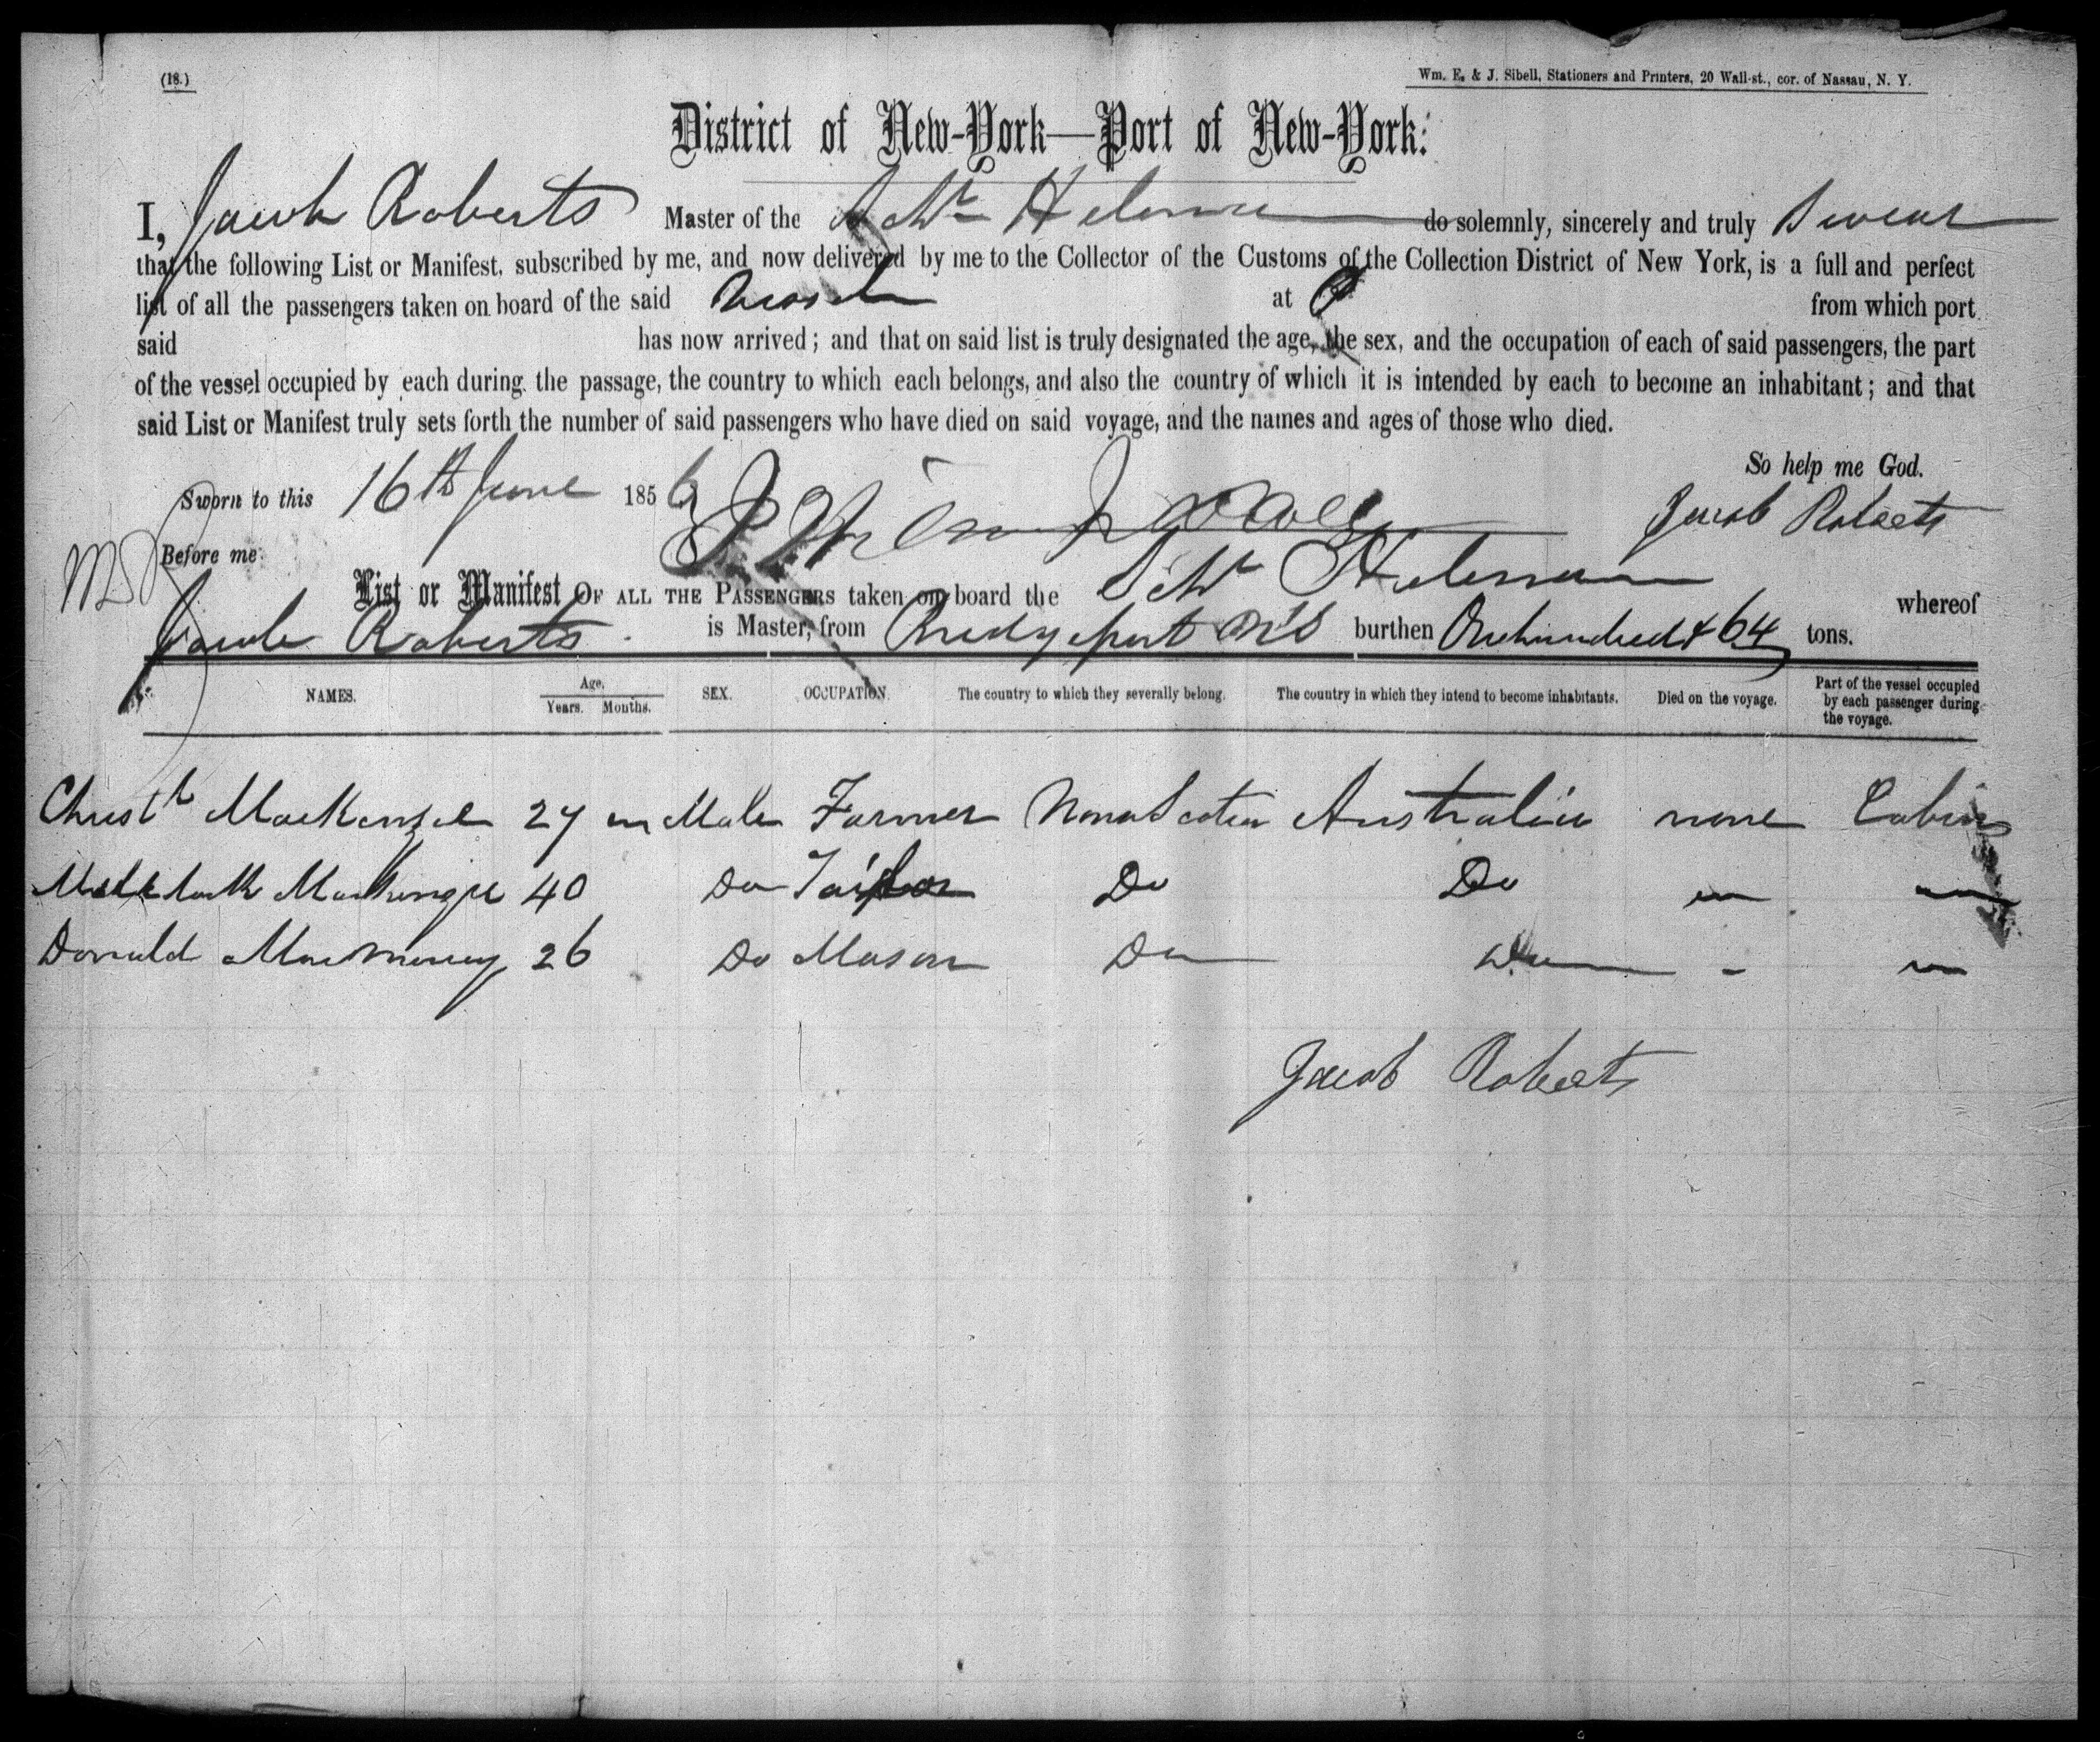 (18.)
Wm. E. & J. Sibell, Stationers and Printers, 20 Wall-st., cor. of Nassau, N. Y.
District of New-York—Port of New-York:
I, Jacob Roberts Master of the Schr do solemnly, sincerely and truly Swear
that the following List or Manifest, subscribed by me, and now delivered by me to the Collector of the Customs of the Collection District of New York, is a full and perfect
list of all the passengers taken on board of the said Vessel at from which port
said has now arrived; and that on said list is truly designated the age, the sex, and the occupation of each of said passengers, the part
of the vessel occupied by each during the passage, the country to which each belongs, and also the country of which it is intended by each to become an inhabitant; and that
said List or Manifest truly sets forth the number of said passengers who have died on said voyage, and the names and ages of those who died.
So help me God.
Sworn to this 16th June 1856
Jacob Roberts
Before me
List or Manifest OF ALL THE PASSENGERS taken on board the Schr whereof
Jacob Roberts is Master, from Bridgeport burthen Onehundred & 64 tons.
NAMES. Age. Years. Months. SEX. OCCUPATION. The country to which they severally belong. The country in which they intend to become inhabitants. Died on the voyage. Part of the vessel occupied by each passenger during the voyage.
Christr MacKenzie 27 Male Farmer Nova Scotia Australia none Cabin
MacKenzie 40 Do Tailor Do Do
Donald 26 Do Mason Do
Jacob Roberts